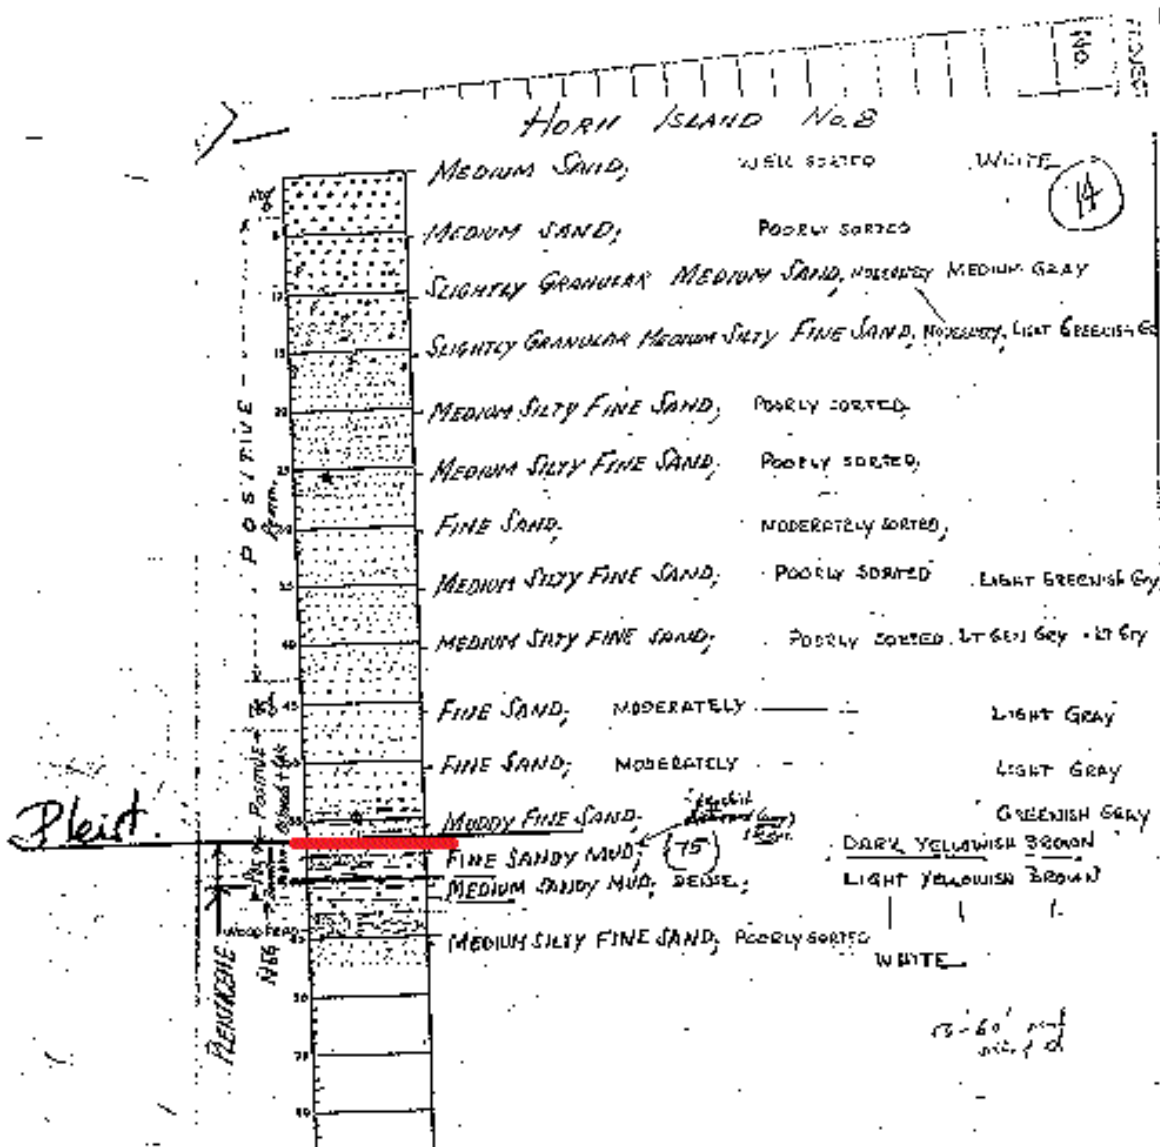 HORN ISLAND No. 8
MEDIUM SAND; WELL SORTED WHITE
14
MEDIUM SAND; POORLY SORTED
SLIGHTLY GRANULAR MEDIUM SAND, MEDIUM GRAY
SLIGHTLY GRANULAR MEDIUM SILTY FINE SAND, LIGHT GREENISH
20
MEDIUM SILTY FINE SAND; POORLY SORTED,
POSITIVE
25
MEDIUM SILTY FINE SAND; POORLY SORTED,
FINE SAND; MODERATELY SORTED,
MEDIUM SILTY FINE SAND; POORLY SORTED LIGHT GREENISH GRY
40
MEDIUM SILTY FINE SAND; POORLY SORTED LT GRN GRY - LT GRY
45
FINE SAND; MODERATELY LIGHT GRAY
FINE SAND; MODERATELY LIGHT GRAY
POSITIVE
MUDDY FINE SAND; GREENISH GRAY
Pleist.
FINE SANDY MUD; (75) DARK YELLOWISH BROWN
MEDIUM SANDY MUD; DENSE; LIGHT YELLOWISH BROWN
NEG
MEDIUM SILTY FINE SAND; POORLY SORTED
WHITE